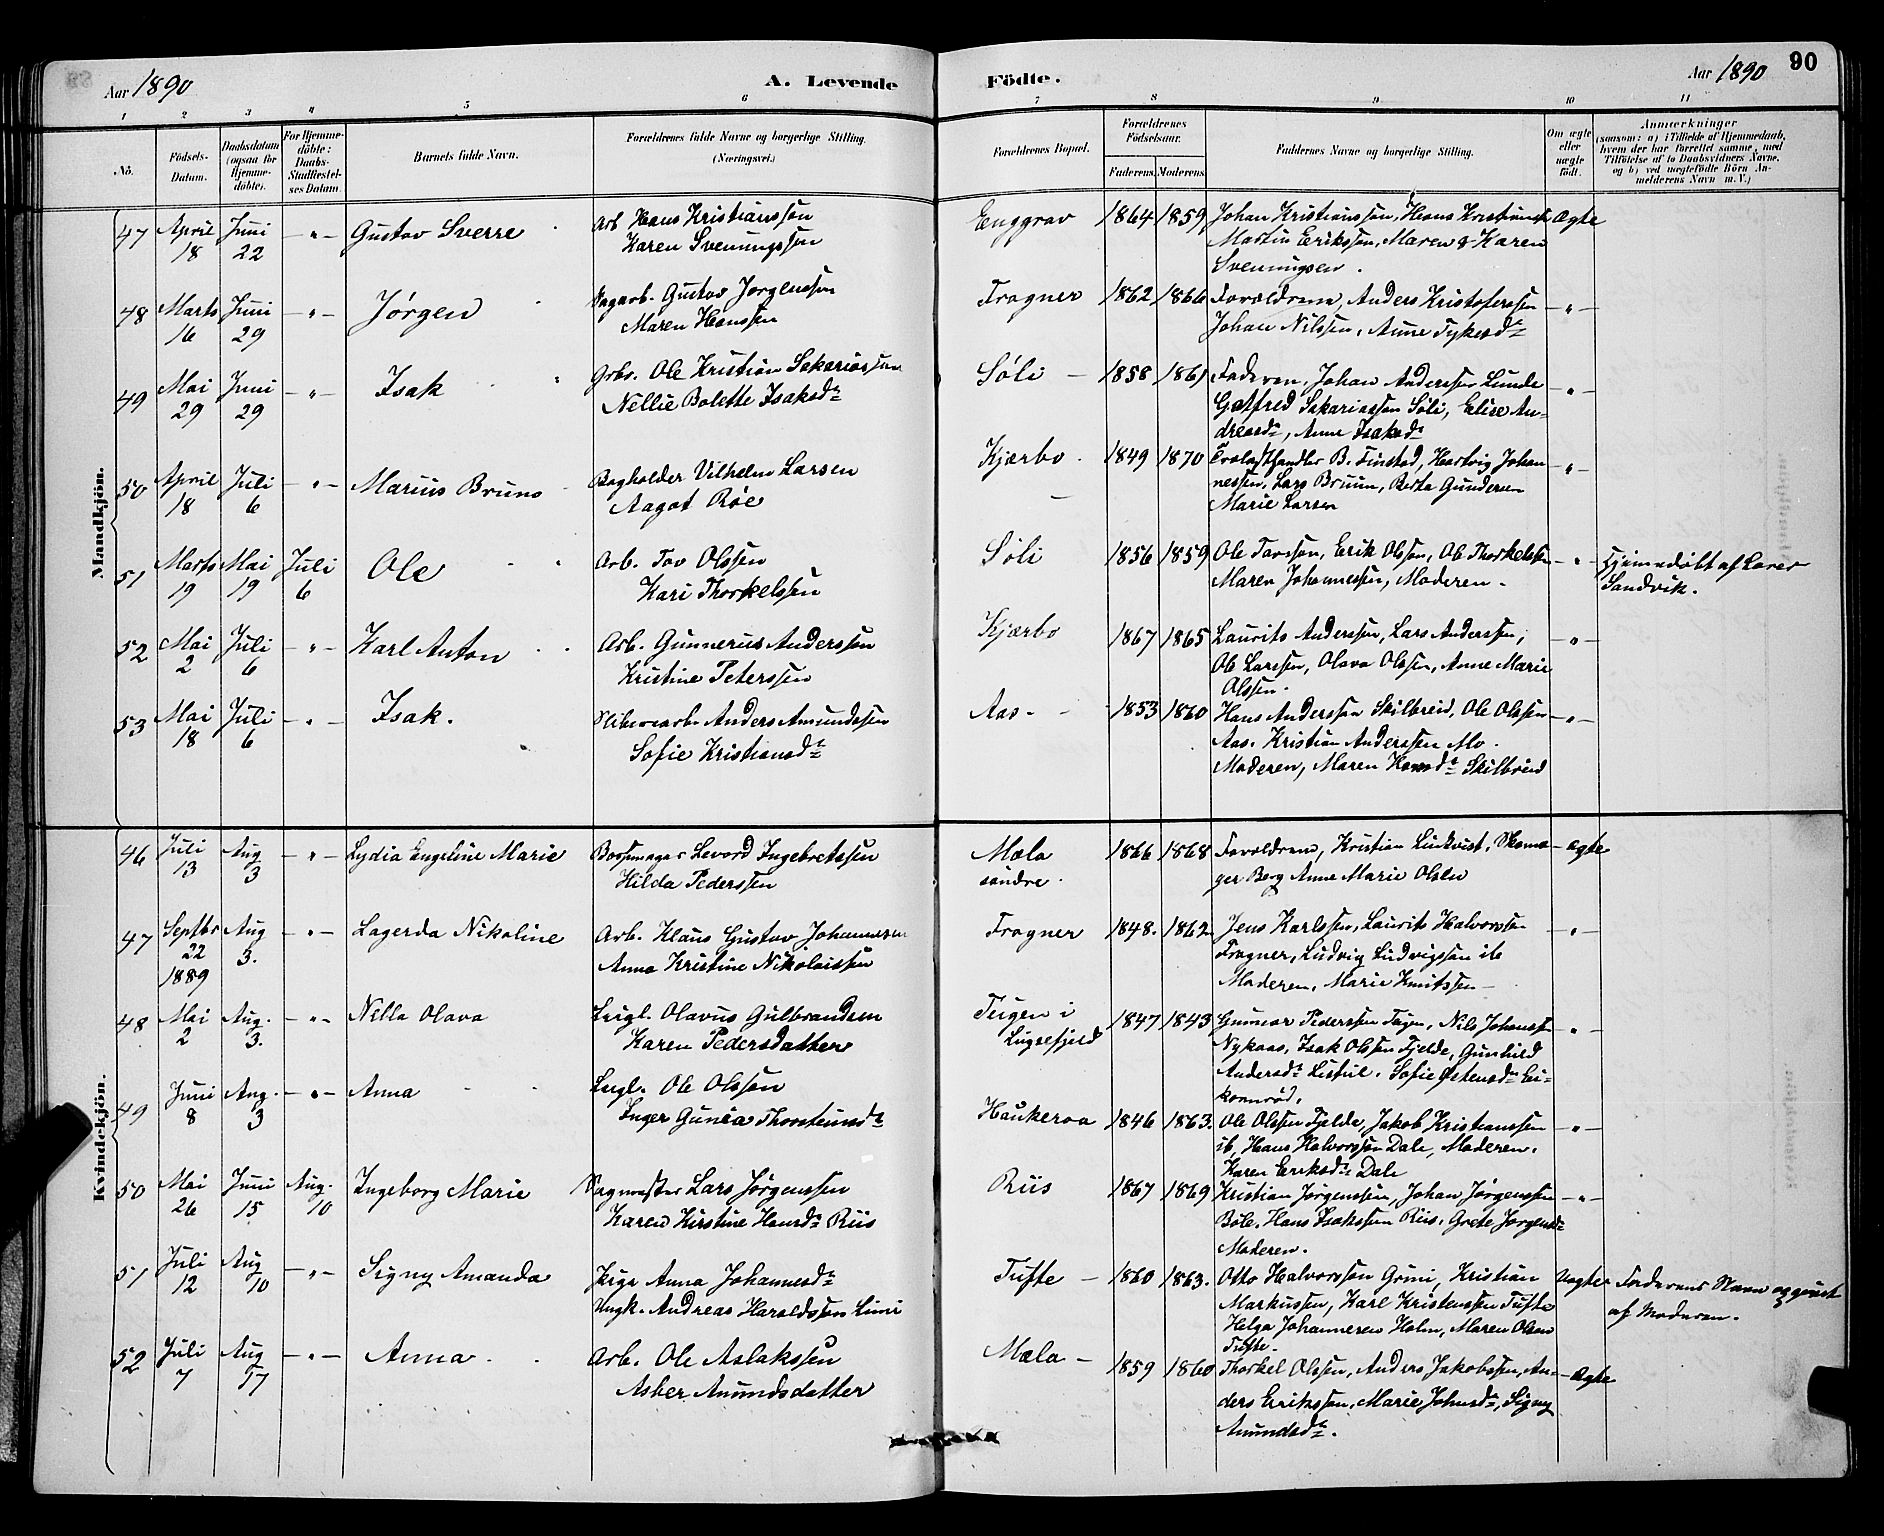 Aar 1890
A. Levende
Födte.
Aar 1890
90
1 2 3 4 5 6 7 8 9 10 11
No.
Födsels-
Datum.
Daabsdatum
(ogsaa for
Hjemme-
döbte).
For Hjemme-
döbte:
Daabs-
Stadfæstel-
ses Datum.
Barnets fulde Navn.
Forældrenes fulde Navne og borgerlige Stilling.
(Næringsvei.)
Forældrenes Bopæl.
Forældrenes
Födselsaar.
Faderens. Moderens.
Faddernes Navne og borgerlige Stilling.
Om ægte
eller
uægte
født.
Anmærkninger
(saasom: a) i Tilfælde af Hjemmedaab,
hvem der har forrettet samme, med
Tilføielse af to Daabsvidners Navne.
og b) ved uægtefødte Börn An-
melderens Navn m. V.)
Mandkjön.
47 April 18 Juni 22 - " - Gustav Sverre
Arb Hans Kristianssøn
Karen Svenungssøn
Enggrav 1864 1859
Johan Kristianssøn, Hans Kristianss.
Martin Erikssøn, Maren & Karen
Svenungsen.
Ægte
48 Marts 16 Juni 29 - " - Jørgen
Sagarb. Gustav Jørgenssøn
Maren Hanssen
Frogner 1862 1866
Forældrene, Anders Kristoferssen
Johan Nilssen, Anne Tykesd.
- " -
49 Mai 29 Juni 29 - " - Isak
Grbr. Ole Kristian Sakariassøn
Nellie Bolette Isaksdr
Søli - 1858 1861
Faderen, Johan Anderssen Lunde
Gotfred Sakariassen Søli, Elise An-
dreasdr, Anne Isaksdr
- " -
50 April 18 Juli 6 - " - Marius Bruno
Bogholder Vilhelm Larsen
Aagot Röe
Kjærbo - 1849 1870
Trælasthandler B. Finstad, Hartvig Johan-
nessen, Lars Bruun, Berta Gundersen
Marie Larsen
- " -
51 Marts 19 Mai 19 Juli 6 Ole
Arb. Tov Olssen
Kari Thorkelssen
Søli 1856 1859
Ole Tovssøn, Erik Olssøn, Ole Thorkelss.
Maren Johannessen, Moderen.
- " -
Hjemmedøbt af Lærer
Sandvik.
52 Mai 2 Juli 6 - " - Karl Anton
Arb. Gunnerius Anderssøn
Kristine Peterssen
Kjærbo 1867 1865
Laurits Anderssen, Lars Anderssen,
Ole Larssen, Olava Olssen, Anne Marie
Olssen.
- " -
53 Mai 18 Juli 6 - " - Isak.
Anders Amundssen
Sofie Kristiansdr
Aas - 1853 1860
Hans Anderssøn Skilbreid, Ole Olssen
Aas. Kristian Anderssen Mo.
Moderen, Maren Hansdr Skilbreid
- " -
Kvindekjön.
46 Juli 13 Aug 3 - " - Lydia Engeline Marie
Bøssemager Levord Ingebretssen
Hilda Pederssen
Mæla søndre. 1866 1868
Forældrene, Kristian Lindkvist, Skoma-
ger Berg Anne Marie Olsen
ægte
47 Septbr 22 1889 Aug 3. - " - Lagerda Nikoline
Arb. Klaus Gustav Johannesen
Anna Kristine Nikolaissen
Frogner 1848. 1862
Jens Karlssen, Laurits Halvorssøn
Frogner, Ludvig Ludvigssøn ib
Moderen, Marie Knutssen
- " -
48 Mai 2 Aug. 3. - " - Nella Olava
Leigl. Olavus Gulbrandsen
Karen Pedersdatter
Teigen i
Luksefjeld 1847 1843
Gunnar Pederssen Teigen, Nils Johanss.
Nykaas, Isak Olssen Fjelde, Gunhild
Andersdr Listul. Sofie Østensdr Ei-
kornrød.
- " -
49 Juni 8 Aug. 3 - " - Anna
Leigl. Ole Olssøn
Inger Gunea Thorsteinsdr
Haukeraa 1846 1863.
Ole Olssen Fjelde, Jakob Kristianssen
ib, Hans Halvorssøn Dale, Moderen.
Karen Eriksdr Dale
- " -
50 Mai 26 Juni 15 Aug. 10 Ingeborg Marie
Sagmester Lars Jørgenssen
Karen Kirstine Hansdr Riis
Riis 1867 1869
Kristian Jørgenssen, Johan Jørgenssen
Bøle, Hans Isakssen Riis, Grete Jørgensdr
Moderen.
- " -
51 Juli 12 Aug 10 - " - Signy Amanda
Pige Anna Johannesdr
Ungk. Andreas Haraldssøn Limi
Tufte - 1860 1863.
Otto Halvorssøn Grini, Kristian
Markussen, Karl Kristenssen Tufte
Helga Johannesen Holm, Maren Olsen
Tufte.
Uægte
Faderens Navn opgivet
af Moderen.
52 Juli 7 Aug 17 - " - Anna
Arb. Ole Aslakssen
Asber Anundsdatter
Mæla - 1859 1860
Thorkel Olssen, Anders Jakobssen, An-
ders Erikssen, Marie Johnsdr, Signy
Anundsdr.
- Ægte